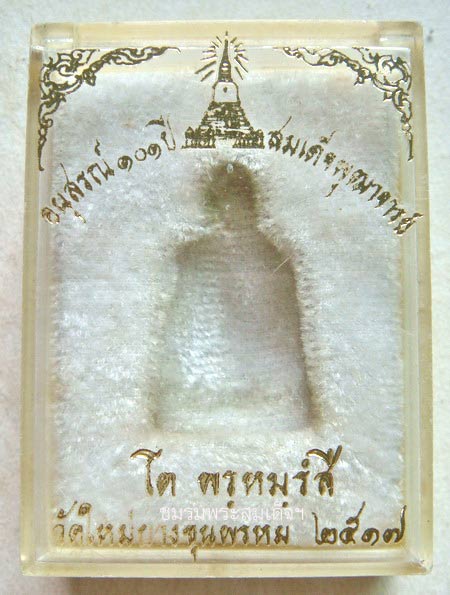 อนุสรณ์ ๑๐๑ ปี สมเด็จพุฒาจารย์
โต พรฺหมรํสี
ชมรมพระสมเด็จฯ
วัดใหม่บางขุนพรหม ๒๕๑๗